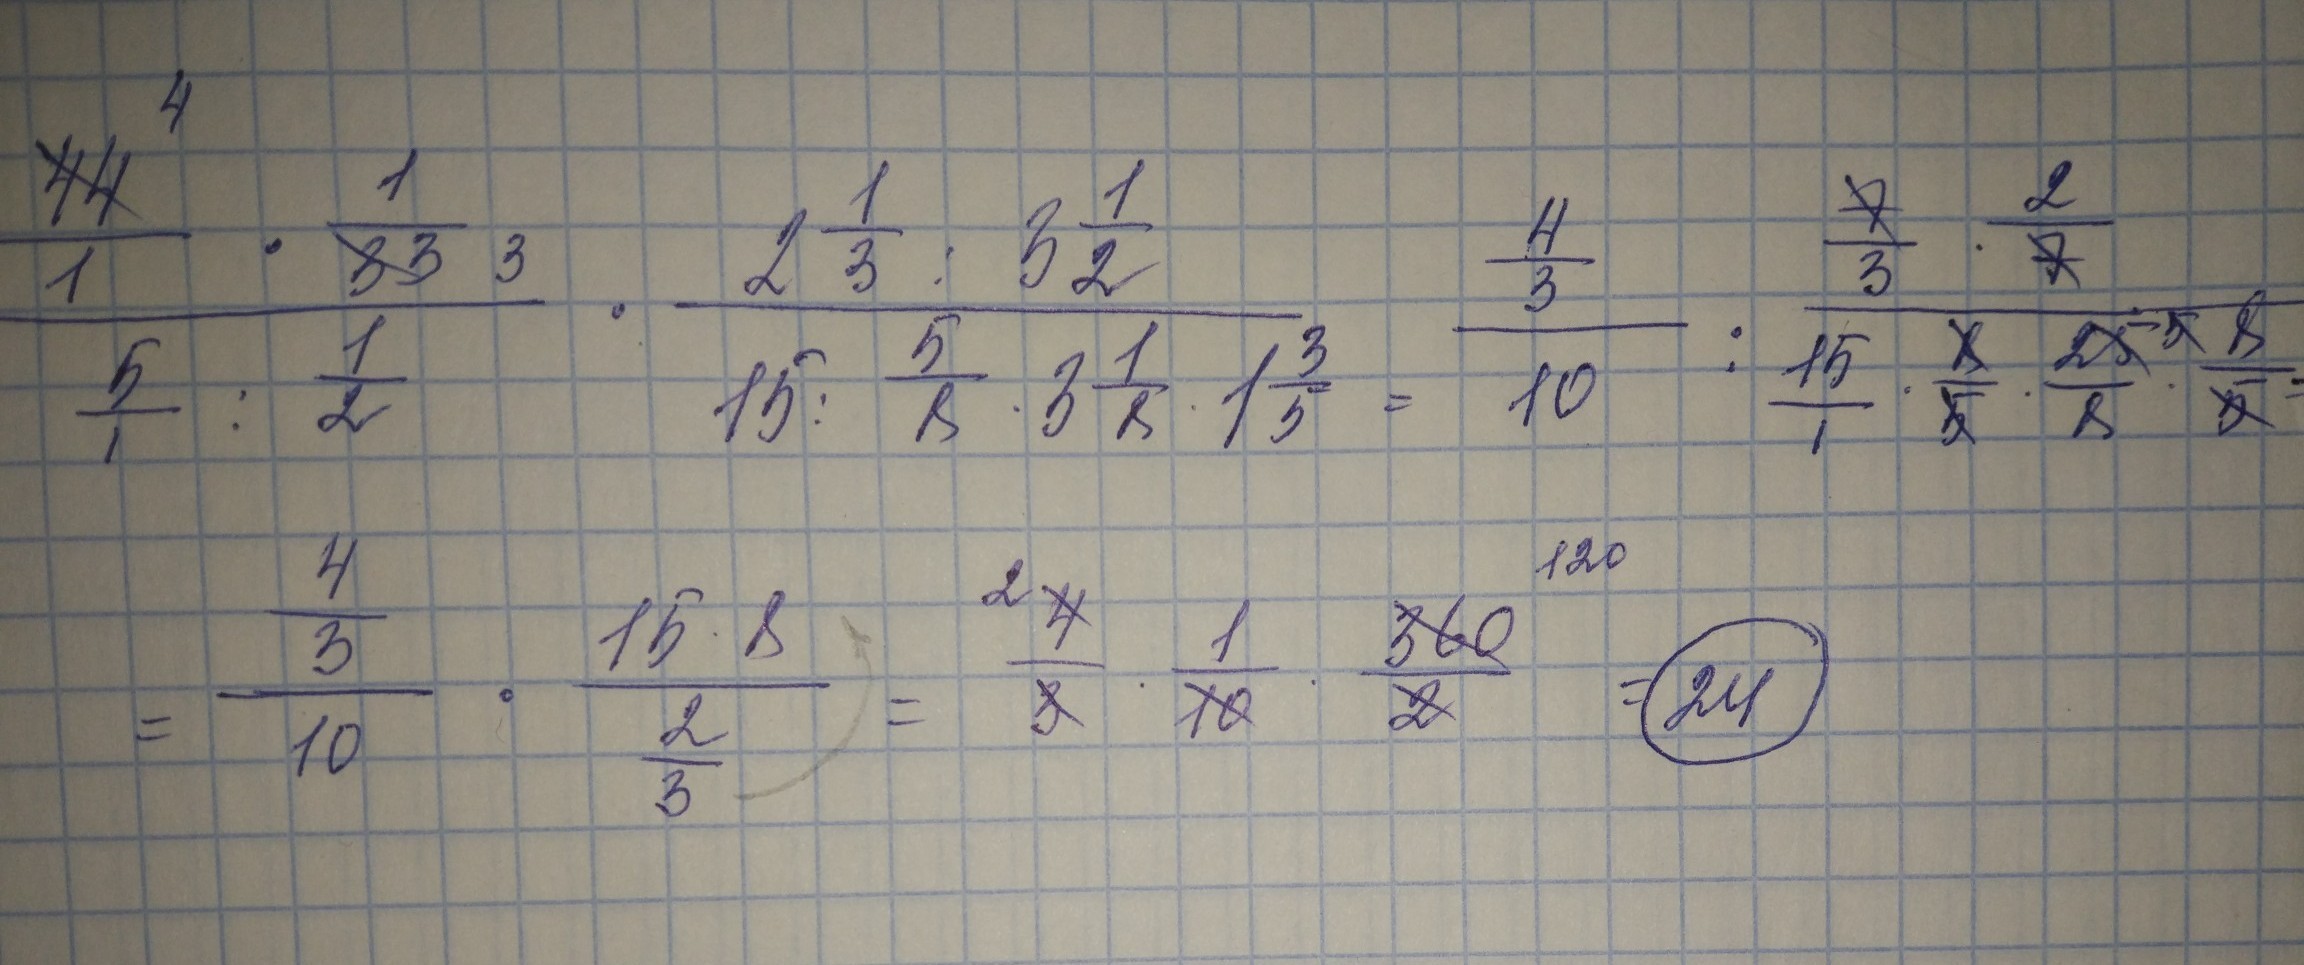 \frac{\frac{44}{1} ^4 · \frac{1}{33} 3}{\frac{5}{1} : \frac{1}{2}} · \frac{2\frac{1}{3} : 3\frac{1}{2}}{15 : \frac{5}{8} · 3\frac{1}{8} · 1\frac{3}{5}} = \frac{\frac{4}{3}}{10} : \frac{\frac{7}{3} · \frac{2}{7}}{\frac{15}{1} · \frac{8}{5} · \frac{25}{8} 5 · \frac{8}{5}} =
= \frac{\frac{4}{3}}{10} · \frac{15 · 8}{\frac{2}{3}} = 2 \frac{4}{3} · \frac{1}{10} · \frac{360}{2} 120 = 24